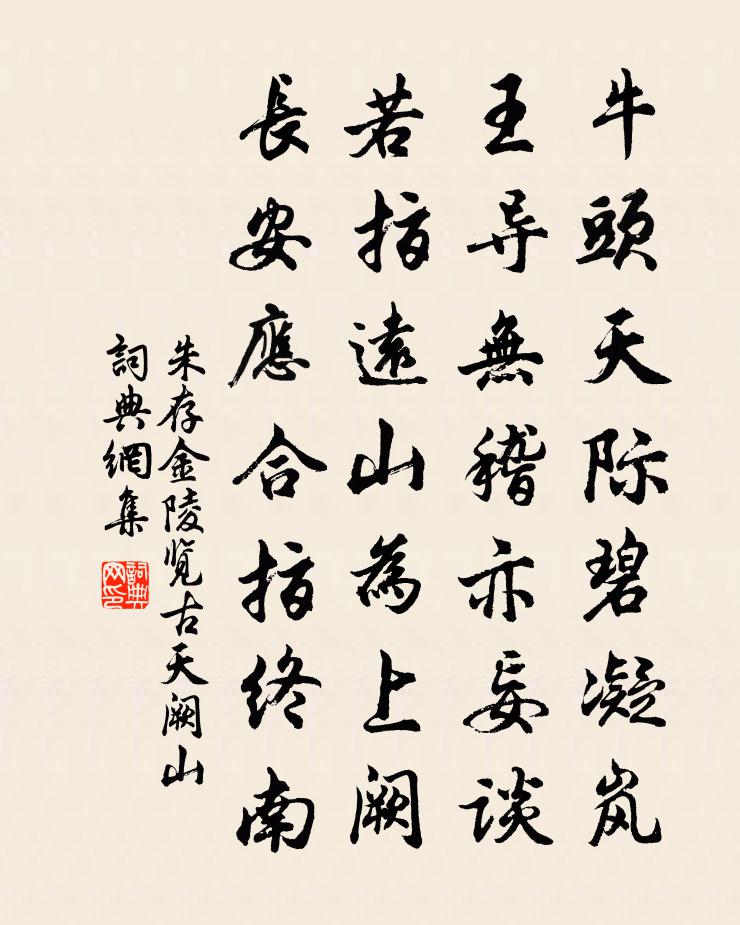 牛頭天际碧凝岚
王导無稽亦妄谈
若指遠山為上阙
長安應合指终南
朱存金陵览古天阙山
詞典網集
詞典网印